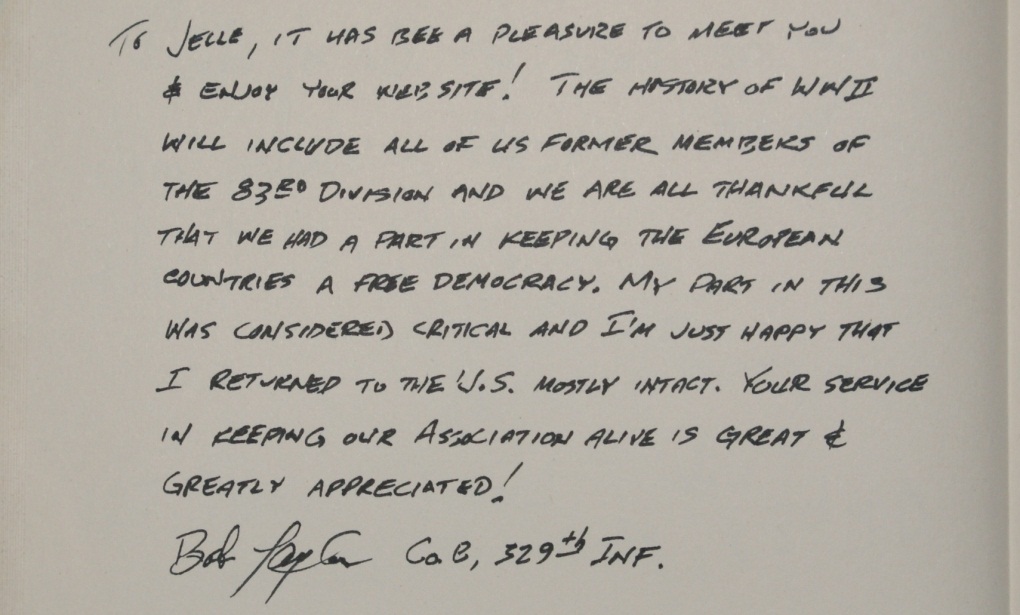 To JELLE, IT HAS BEE A PLEASURE TO MEET YOU
& ENJOY YOUR WEB SITE! THE HISTORY OF WWII
WILL INCLUDE ALL OF US FORMER MEMBERS OF
THE 83RD DIVISION AND WE ARE ALL THANKFUL
THAT WE HAD A PART IN KEEPING THE EUROPEAN
COUNTRIES A FREE DEMOCRACY. MY PART IN THIS
WAS CONSIDERED CRITICAL AND I'M JUST HAPPY THAT
I RETURNED TO THE U.S. MOSTLY INTACT. YOUR SERVICE
IN KEEPING OUR ASSOCIATION ALIVE IS GREAT &
GREATLY APPRECIATED!
Bob Co. C, 329th INF.